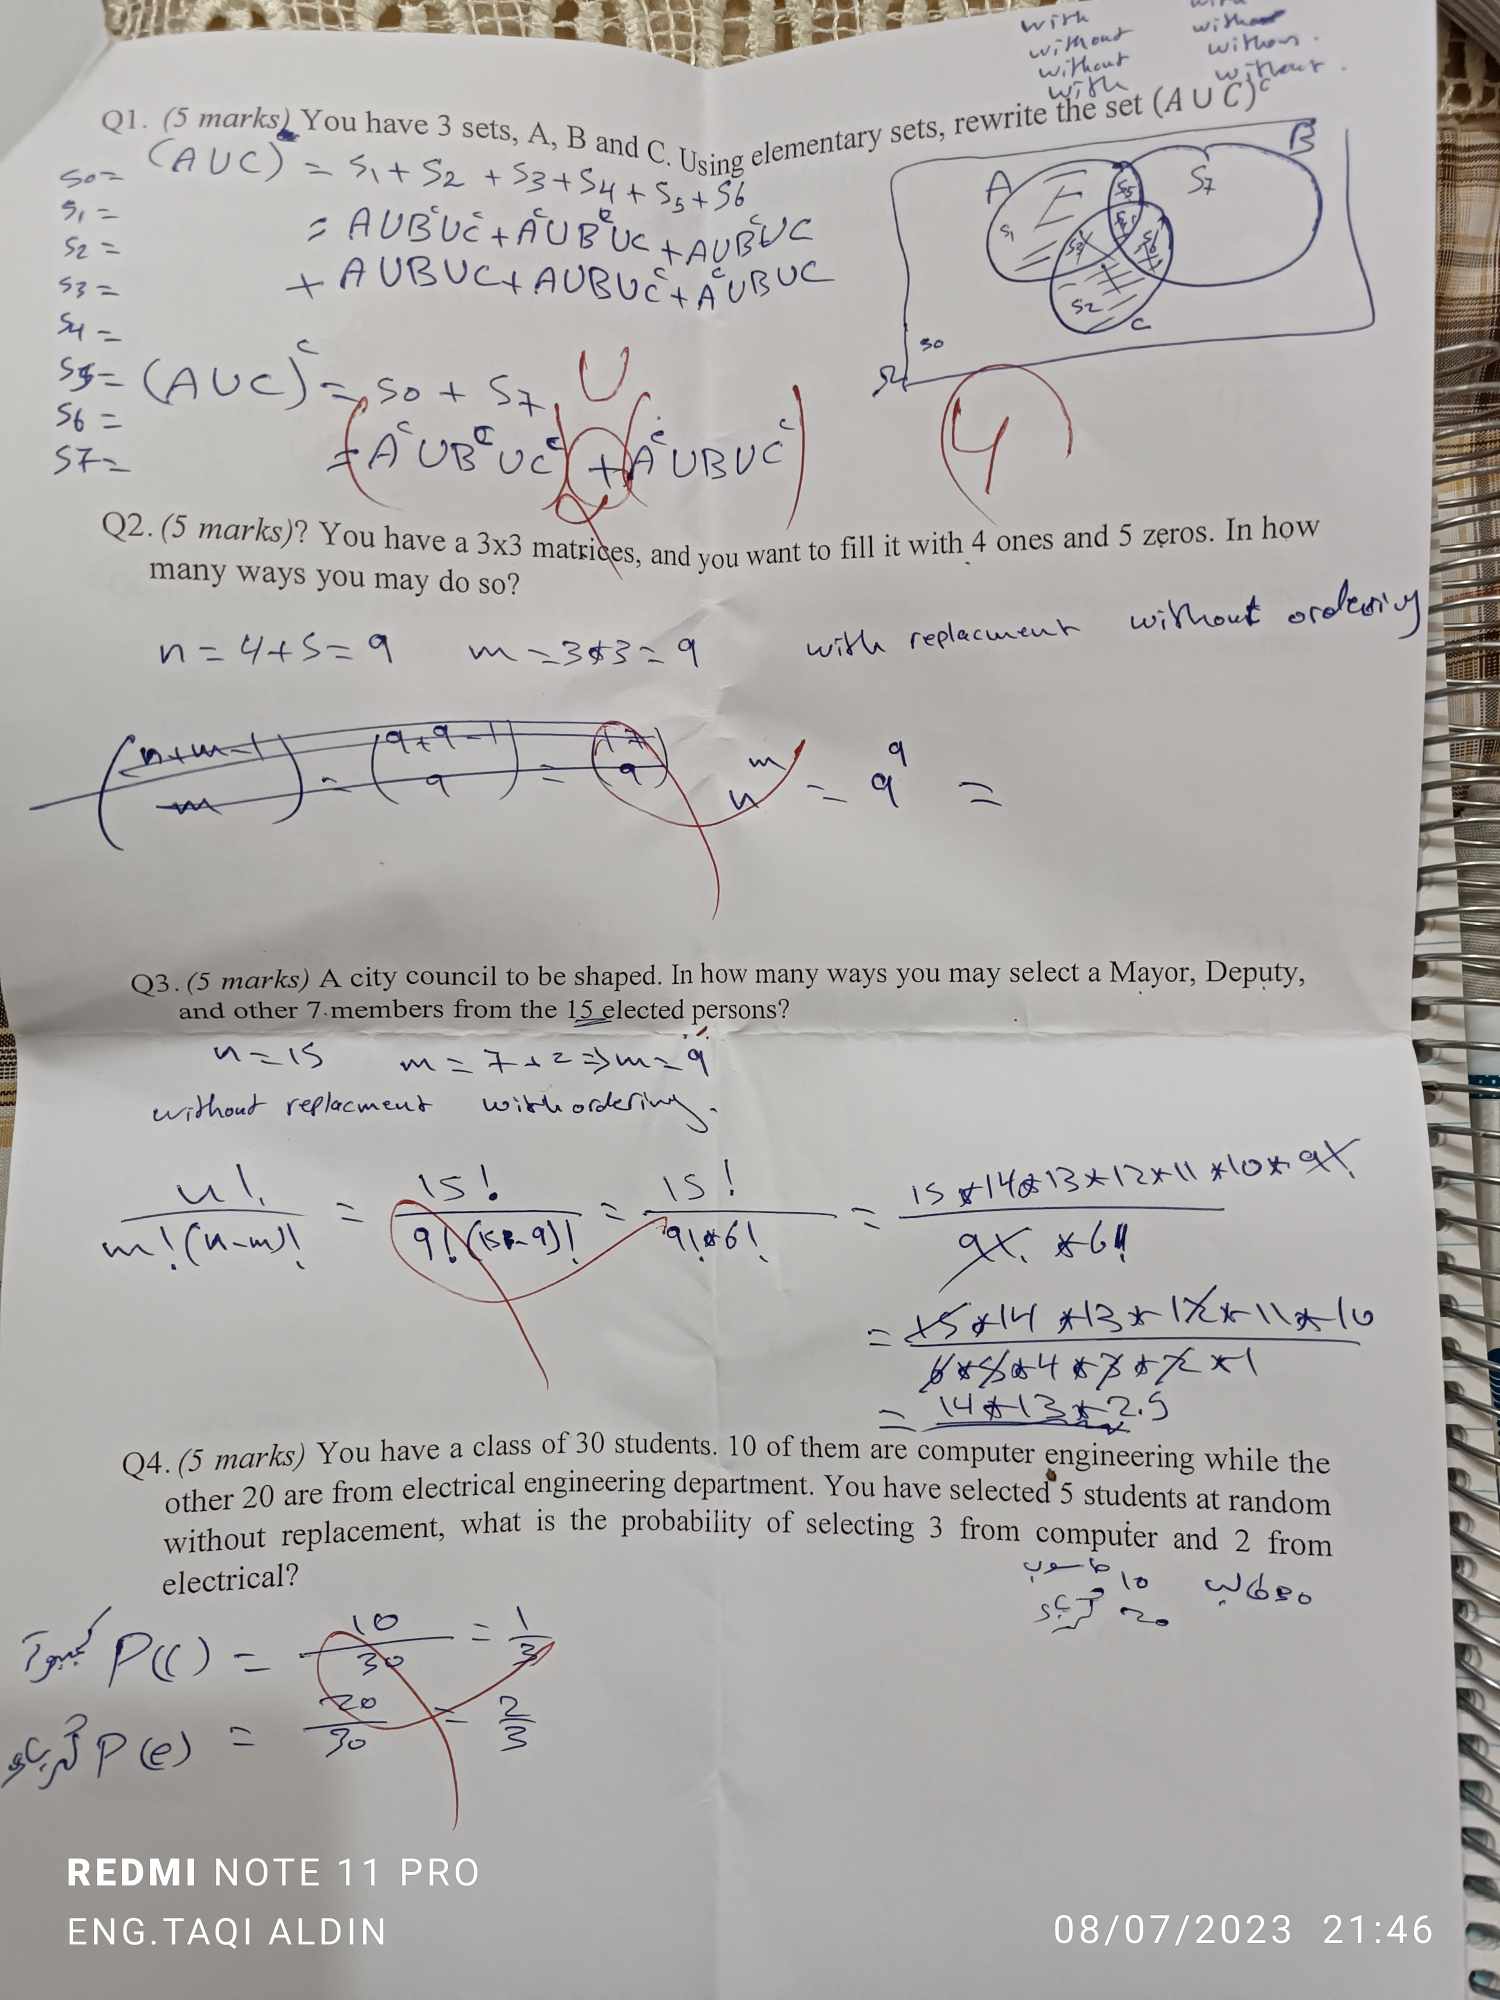 with
without
without
with
without
without.
without.
Q1. (5 marks) You have 3 sets, A, B and C. Using elementary sets, rewrite the set (A ∪ C)ᶜ
(A∪C) = S1 + S2 + S3 + S4 + S5 + S6
= A∪Bᶜ∪Cᶜ + Aᶜ∪Bᶜ∪C + A∪Bᶜ∪C
+ A∪B∪C + A∪B∪Cᶜ + Aᶜ∪B∪C
S0=
S1=
S2=
S3=
S4=
S5=
S6=
S7=
A
B
S7
S5
S4
S1
S3
S6
S2
C
S0
Ω
(A∪C)ᶜ = S0 + S7
∪
= (Aᶜ∪Bᶜ∪Cᶜ) + (Aᶜ∪B∪Cᶜ)
4
Q2. (5 marks)? You have a 3x3 matrices, and you want to fill it with 4 ones and 5 zeros. In how
many ways you may do so?
n = 4+5 = 9 m = 3*3 = 9 with replacment without ordering
(n+m-1 m) = (9+9-1 9) = (17 9) nᵐ = 9⁹ =
Q3. (5 marks) A city council to be shaped. In how many ways you may select a Mayor, Deputy,
and other 7 members from the 15 elected persons?
n = 15 m = 7+2 => m = 9
without replacment with ordering.
n! / m!(n-m)! = 15! / 9!(15-9)! = 15! / 9!*6! = 15*14*13*12*11*10*9! / 9! *6!
= 15*14*13*12*11*10 / 6*5*4*3*2*1
= 14*13*2.5
Q4. (5 marks) You have a class of 30 students. 10 of them are computer engineering while the
other 20 are from electrical engineering department. You have selected 5 students at random
without replacement, what is the probability of selecting 3 from computer and 2 from
electrical?
10
20
P(C) = 10/30 = 1/3
P(e) = 20/30 = 2/3
REDMI NOTE 11 PRO
ENG.TAQI ALDIN
08/07/2023 21:46